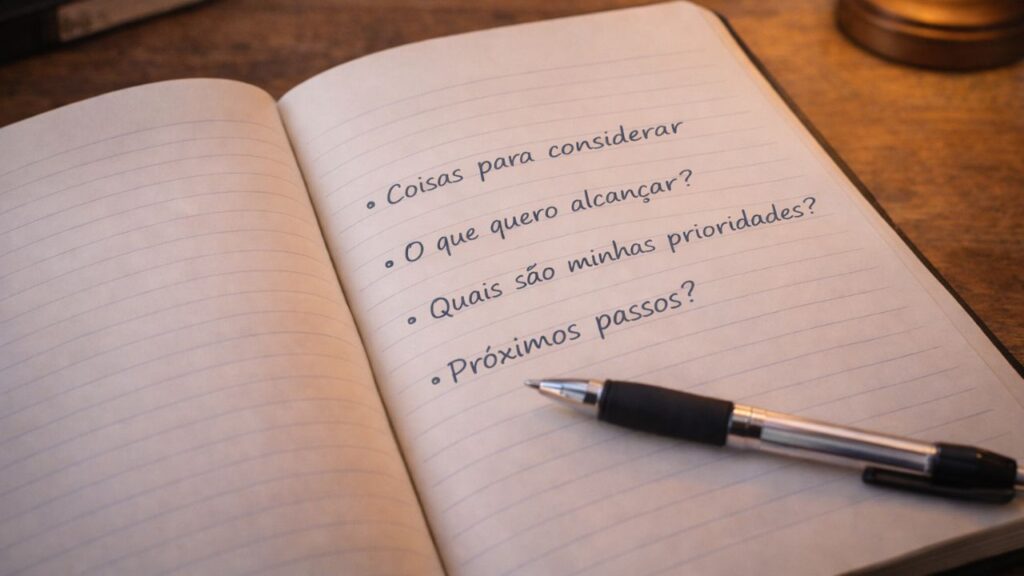 • Coisas para considerar
• O que quero alcançar?
• Quais são minhas prioridades?
• Próximos passos?